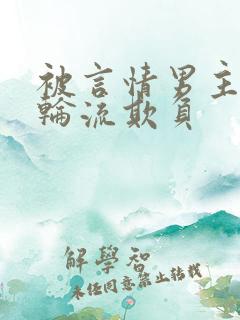 被言情男主
輪流欺負
解學智
未任同意禁止转载